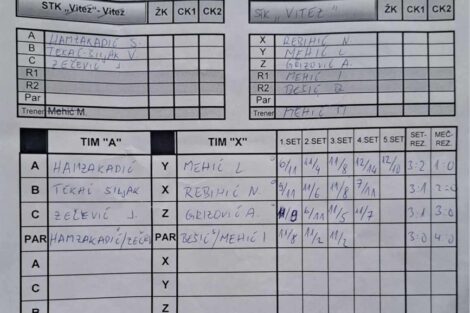 STK „Vitez"- Vitez ŽK CK1 CK2
STK „VITEZ" ŽK CK1 CK2
A HAMZAKADIĆ S.
B TEKAĆ-SILJAK V.
C ZEČEVIĆ J.
R1
R2
Par
Trener Mehić M.
X REBIHIĆ N.
Y MEHIĆ L
Z GRIZOVIĆ A.
R1 MEHIĆ I
R2 BEŠIĆ
Par
Trener MEHIĆ M
TIM "A" TIM "X" 1.SET 2.SET 3.SET 4.SET 5.SET SET-REZ. MEČ-REZ.
A HAMZAKADIĆ Y MEHIĆ L 6/11 11/4 11/8 12/14 12/10 3:2 1:0
B TEKAĆ SILJAK X REBIHIĆ N. 11/6 11/8 3:1 2:0
C ZEČEVIĆ J. Z GRIZOVIĆ A. 11/9 6/11 11/5 11/7 3:1 3:0
PAR HAMZAKADIĆ/ZEČEV PAR BEŠIĆ/MEHIĆ I 11/8 11/2 11/2 3:0 4:0
A X
B Y
C Z
B